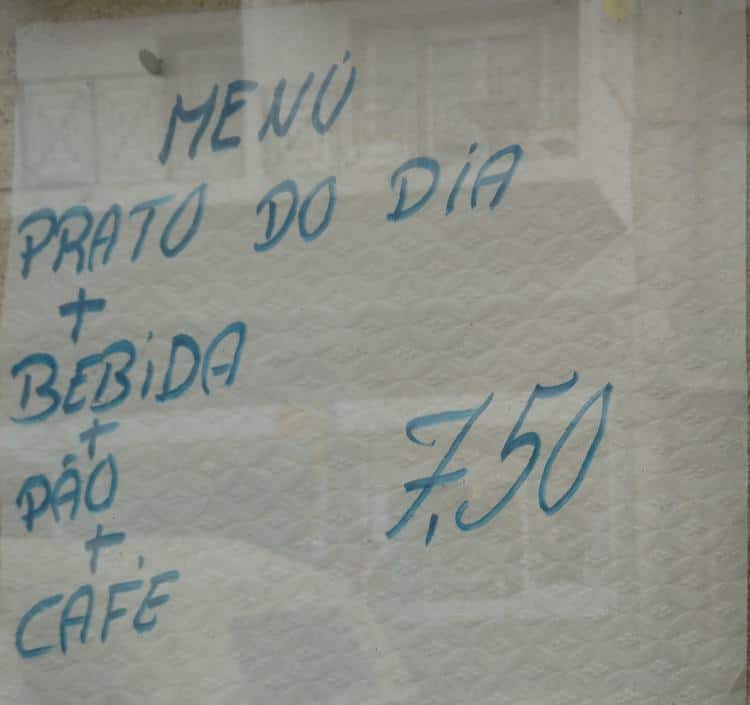 MENÚ
PRATO DO DiA
+
BEBiDA
+
PÃO
+
CAFÉ
7,50